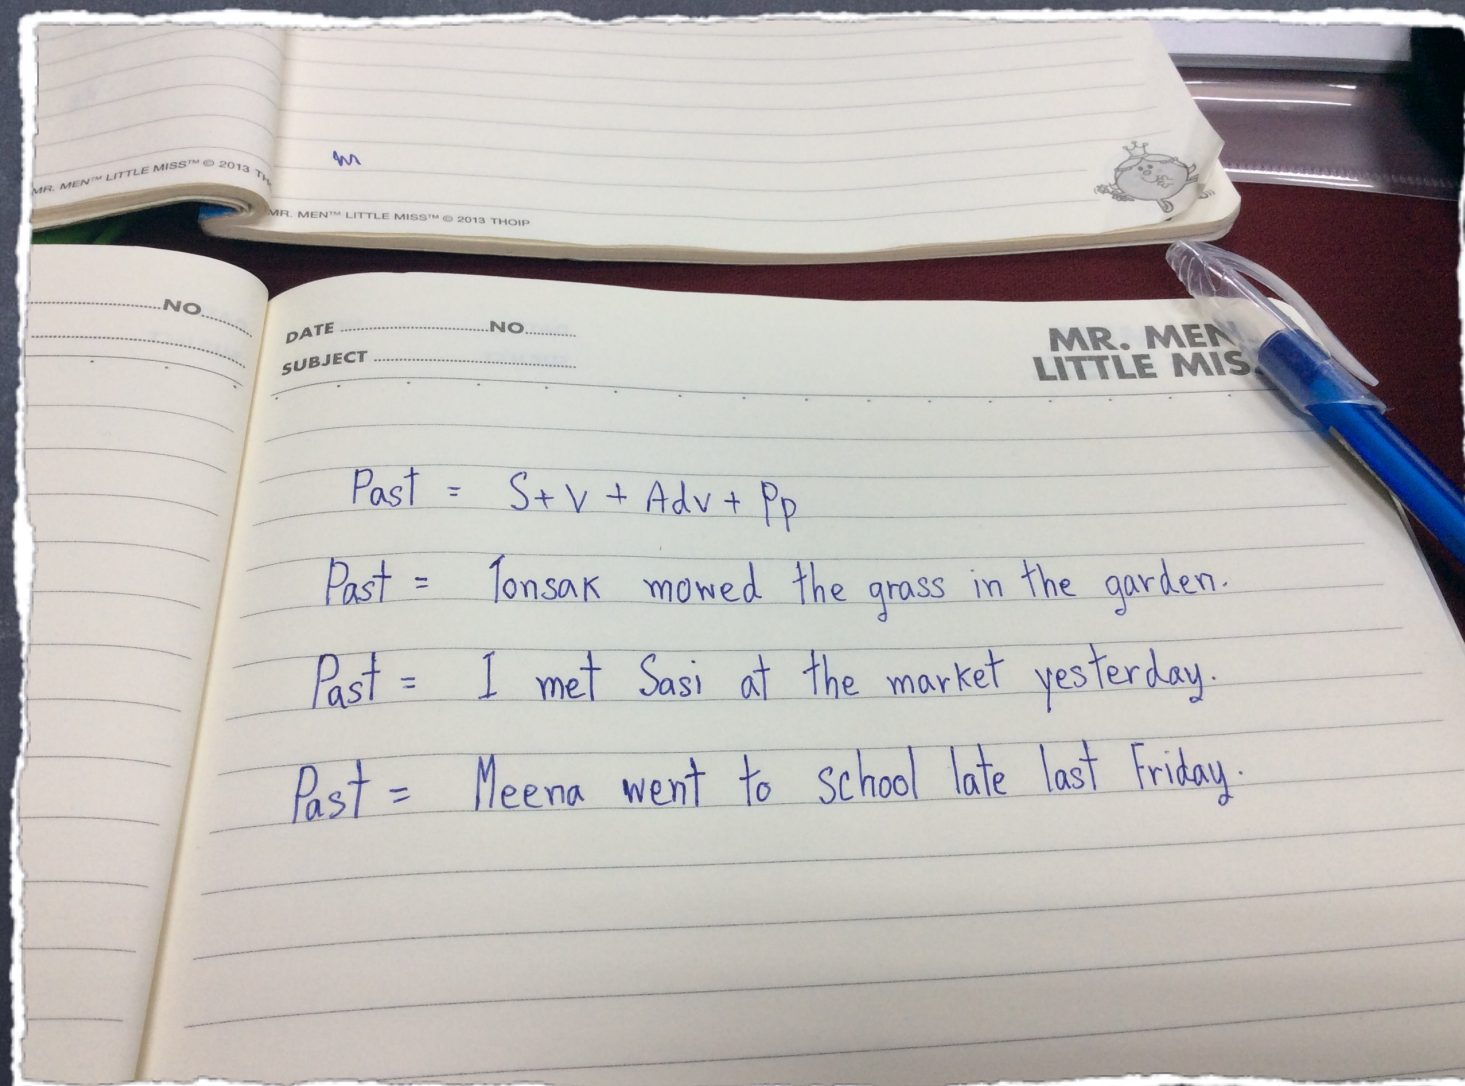 m
MR. MEN™ LITTLE MISS™ © 2013 TH
MR. MEN™ LITTLE MISS™ © 2013 THOIP
NO
DATE NO
SUBJECT
MR. MEN
LITTLE MIS
Past = S + V + Adv + Pp
Past = Tonsak mowed the grass in the garden.
Past = I met Sasi at the market yesterday.
Past = Meena went to school late last Friday.